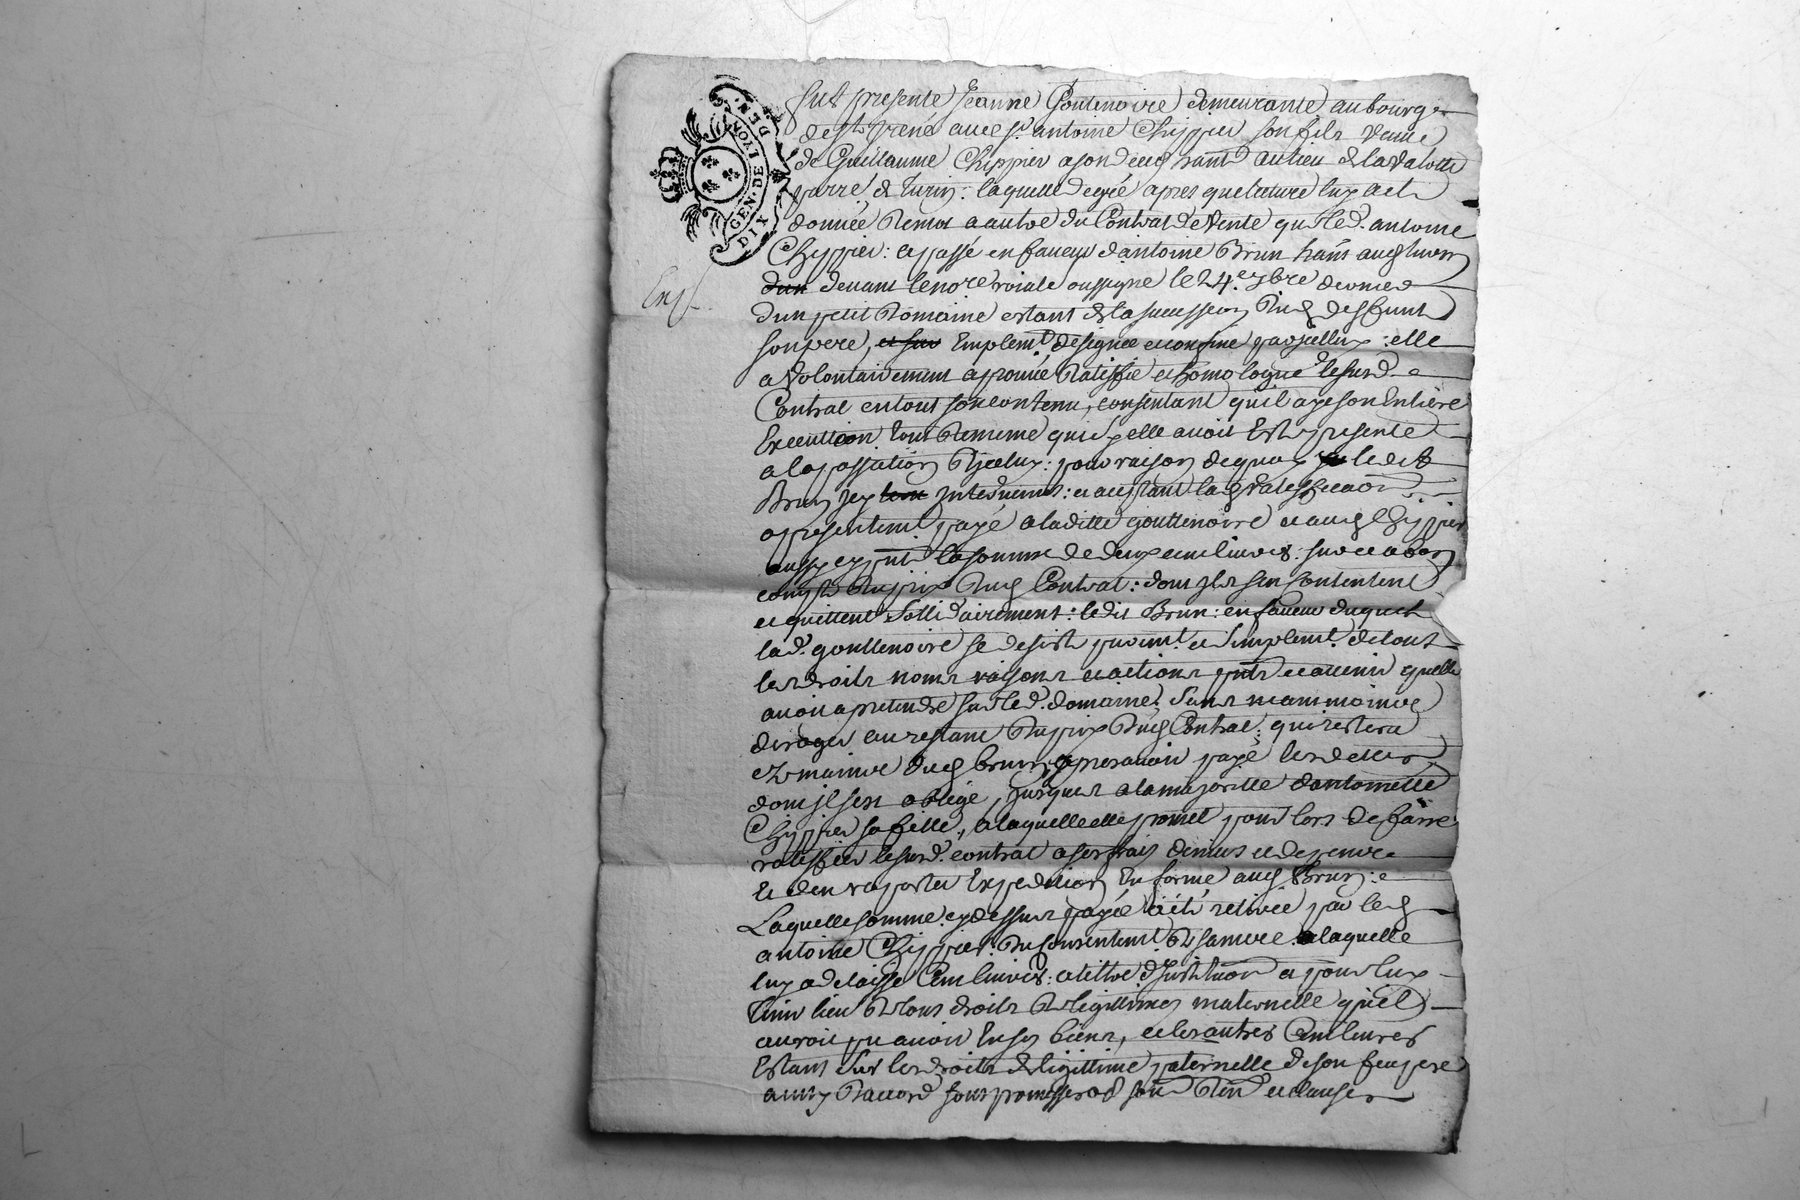 GEN. DE LYON
DIX DEN.
Exp.
fut presente Jeanne Gontenoire demeurante au bourg
de St. avec Sr. antoine Chippier son fils veuve
de Guillaume Chippier a son deces hant au lieu de la valotte
parr. de laquelle de gré apres que lecture luy a eté
donnée de mot a autre du Contrat de Vente que led. antoine
Chippier a passé en faveur d'antoine Brun hant
devant le nore roiale le 24e. 7bre dernier
d'un petit Domaine estant de la succession dud. deffunt
son pere, Emplemt. designée et confiné par jcelluy : elle
a volontairement aprouvé Ratiffié et homologué lesusd.
Contrat en tout son contenu, consentant qu'il aye son Entiere
Execution tout de meme que sy elle avoit Esté presente
a la passation djceluy : pour raison de quoy ledit
Brun jcy : et acceptant lad. ratifficaon
a presentemt. payé a laditte gouttenoire et aud. Chippier
la somme de deux cent livres : sur et a bon
compte du prix dud. Contrat : dont jls sen contentent
et quittent Sollidairement : ledit Brun : en faveur duquel
lad. gouttenoire se desiste puremt. et Simplemt. de tout
les droits noms raisons et actions pnts et avenir quelle
avoit a pretendre sur led. domaine. Sans neanmoins
deroger au restant du prix dud. Contrat : qui restera
ez mains dud. brun apres avoir payé les dettes
dont jl sest obligé, Jusques a la majoritté dantoinette
Chippier sa fille, a laquelle elle promet pour lors de faire
ratiffier lesusd. contrat a ses frais et depens
Et den raporter Expedition En forme aud. Brun :
Laquelle somme cy dessus payée a été retirée par led.
antoine Chippier du consentemt. de sa mere a laquelle
luy a delaissé Cent livres : a tittre et pour luy
tenir lieu de tous droits de legittimes maternelle quil
auroit pu avoir En ses biens, et les autres Cent livres
Estant Sur les droits de ligittime paternelle de son feu pere
ainsy d'accord sous promesses et clauses